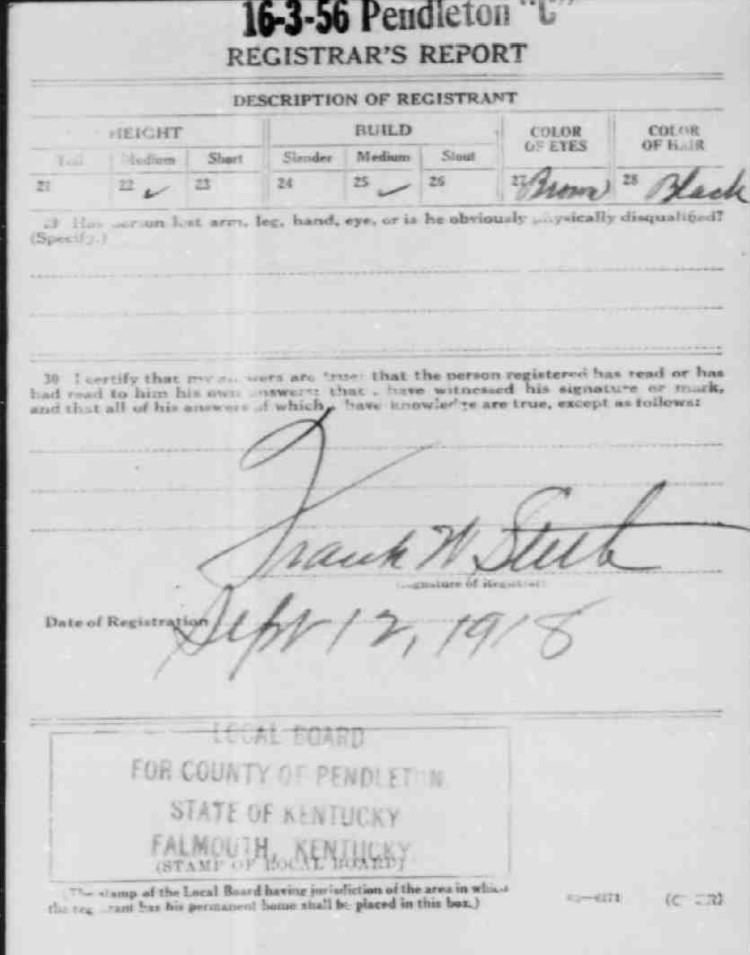 16-3-56 Pendleton "C"
REGISTRAR'S REPORT
DESCRIPTION OF REGISTRANT
HEIGHT BUILD COLOR OF EYES COLOR OF HAIR
Tall Medium Short Slender Medium Stout
21 22 ✓ 23 24 25 ✓ 26 27 Brown 28 Black
29 Has person lost arm, leg, hand, eye, or is he obviously physically disqualified?
(Specify.)
30 I certify that my answers are true; that the person registered has read or has
had read to him his own answers; that I have witnessed his signature or mark,
and that all of his answers of which I have knowledge are true, except as follows:
Frank W.
Signature of Registrar
Date of Registration Sept 12, 1918
LOCAL BOARD
FOR COUNTY OF PENDLETON
STATE OF KENTUCKY
FALMOUTH, KENTUCKY
(STAMP OF LOCAL BOARD)
(The stamp of the Local Board having jurisdiction of the area in which
the registrant has his permanent home shall be placed in this box.)
(OVER)